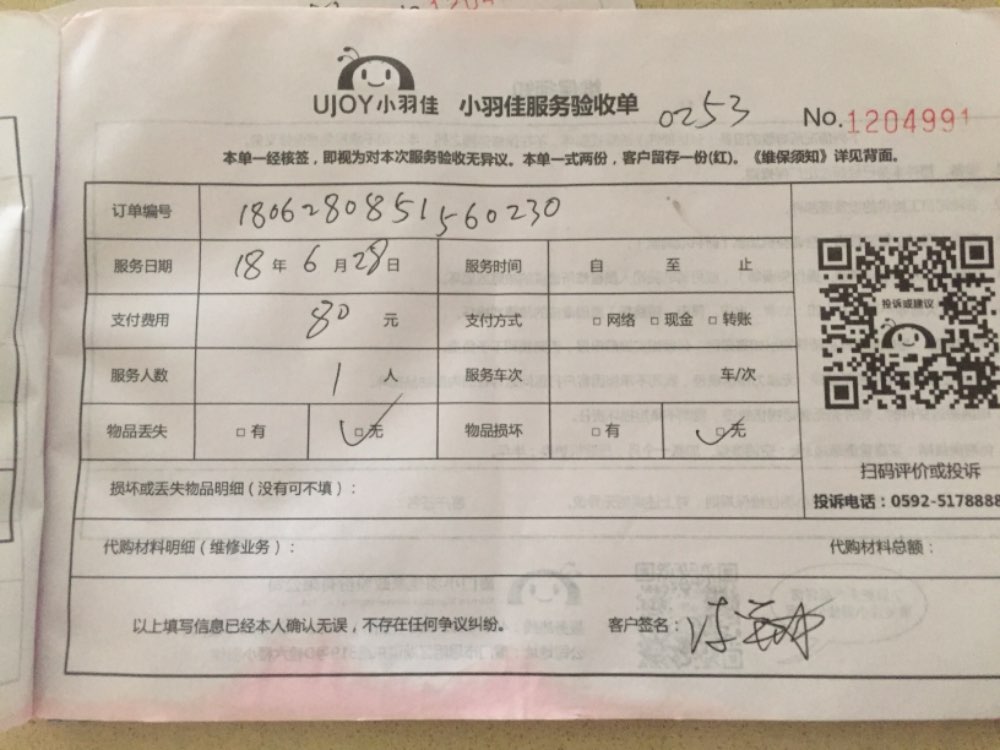 UJOY小羽佳 小羽佳服务验收单 0253 No.1204991
本单一经核签，即视为对本次服务验收无异议。本单一式两份，客户留存一份(红)。《维保须知》详见背面。
订单编号 1806280851560230
服务日期 18 年 6 月 28 日 服务时间 自 至 止
投诉或建议
支付费用 80 元 支付方式 □网络 □现金 □转账
服务人数 1 人 服务车次 车/次
物品丢失 □有 □无 物品损坏 □有 □无
扫码评价或投诉
损坏或丢失物品明细（没有可不填）：
投诉电话：0592-5178888
代购材料明细（维修业务）： 代购材料总额：
以上填写信息已经本人确认无误，不存在任何争议纠纷。 客户签名：